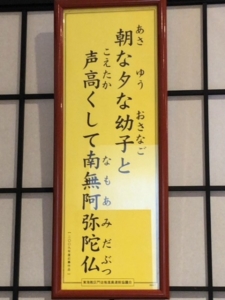 朝な夕な幼子と
あさ ゆう おさなご
声高くして南無阿弥陀仏
こえたか なもあみだぶつ